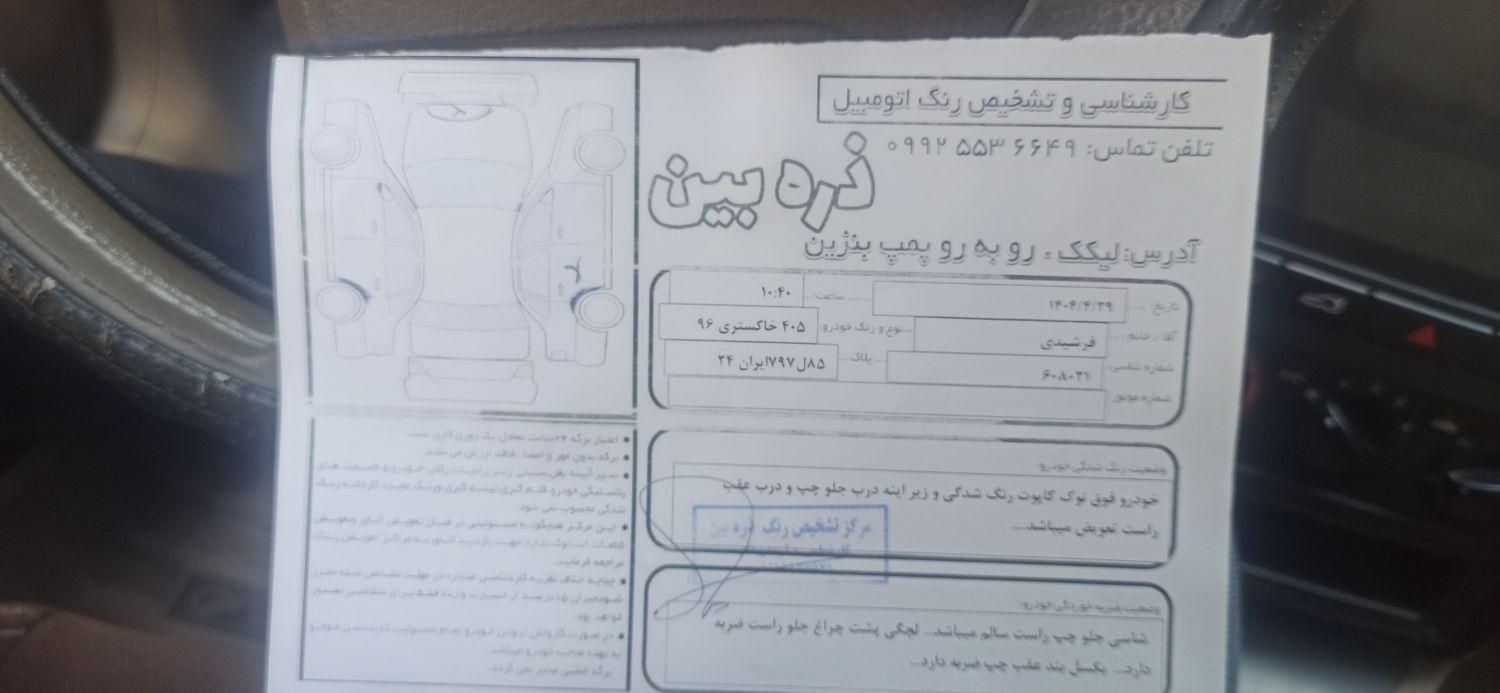 کارشناسی و تشخیص رنگ اتومبیل
تلفن تماس: ۰۹۹۲ ۵۵۳ ۶۶۴۹
ذره بین
آدرس: لیکک ، رو به رو پمپ بنزین
تاریخ: ۱۴۰۴/۴/۲۹ ساعت: ۱۰:۴۰
آقا / خانم: فرشیدی نوع و رنگ خودرو: ۴۰۵ خاکستری ۹۶
شماره شاسی: ۶۰۸۰۳۱ پلاک: ۸۵ل۷۹۷ایران ۲۴
شماره موتور:
وضعیت رنگ شدگی خودرو:
خودرو فوق نوک کاپوت رنگ شدگی و زیر اینه درب جلو چپ و درب عقب
راست تعویض میباشد....
مرکز تشخیص رنگ ذره بین
وضعیت ضربه خوردگی خودرو:
شناسی جلو چپ راست سالم میباشد... لچگی پشت چراغ جلو راست ضربه
دارد... بکسل بند عقب چپ ضربه دارد...
اعتبار برگه ۲۴ساعت معادل یک روزی کاری است.
برگه بدون مهر و امضا ،فاقد ارزش می باشد
سپر آیینه بغل سینی زیر رادیات رکاب خودرو و قسمت های
پلاستیکی خودرو قلم گیری لیسه گیری ورنگ مجدد کارخانه رنگ
شدگی محسوب نمی شود.
این مرکز هیچگونه مسئولیتی در قبال تعویض اتاق وتعویض
قطعات استوک ندارد جهت بازدید اتاق به مراکز تعویض پلاک
مراجعه فرمایید.
چنانچه خلاف نظریه کارشناسی صادره در مهلت مشخص شده محرز
شودجبران ۱۵ درصد از خسارت وارده فقط برای متقاضی مقدور
خواهد بود.
در صورت کارواش نبودن خودرو تمام مسئولیت کارشناسی خودرو
به عهده صاحب خودرو میباشد.
برگه المثنی صادر نمی گردد.